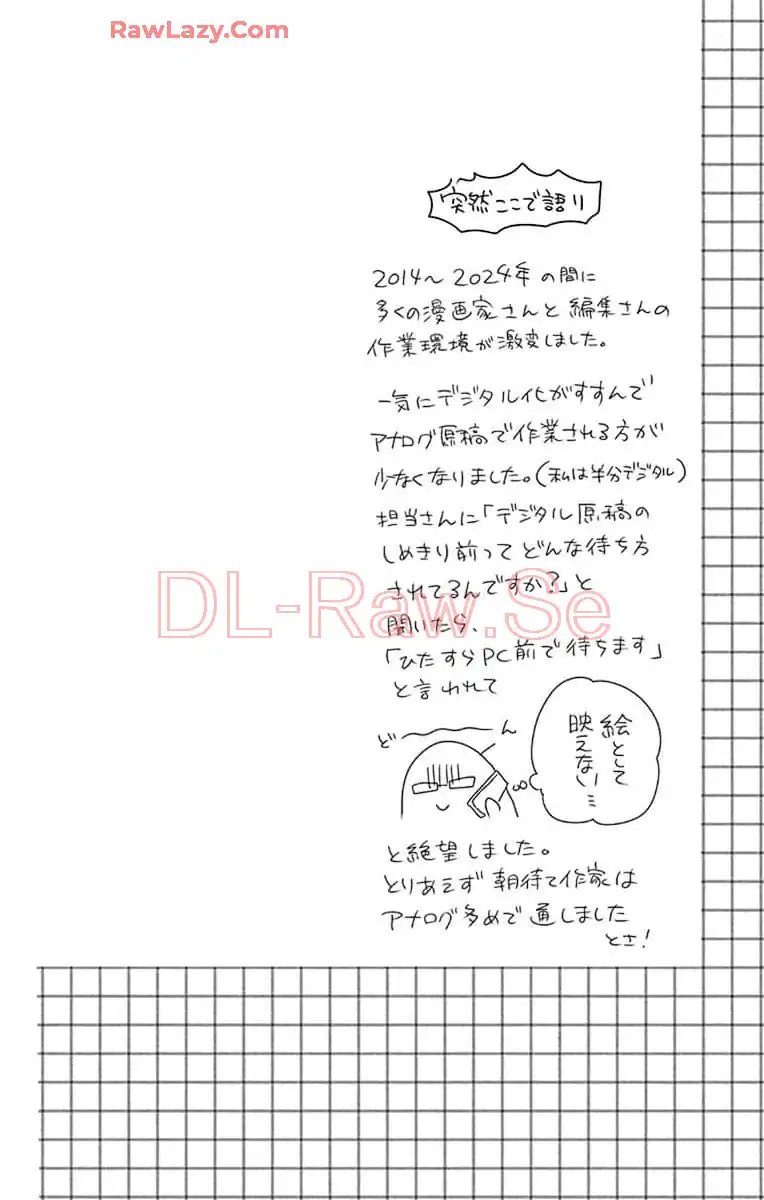 RawLazy.Com
突然ここで語り
2014〜2024年の間に
多くの漫画家さんと編集さんの
作業環境が激変しました。
一気にデジタル化がすすんで
アナログ原稿で作業される方が
少なくなりました。(私は半分デジタル)
担当さんに「デジタル原稿の
しめきり前ってどんな待ち方
されてるんですか?」と
聞いたら、
「ひたすらPC前で待ちます」
と言われて
DL-Raw.Se
ど〜ん
絵として
映えない…
と絶望しました。
とりあえず朝待て作家は
アナログ多めで通しました
とさ!